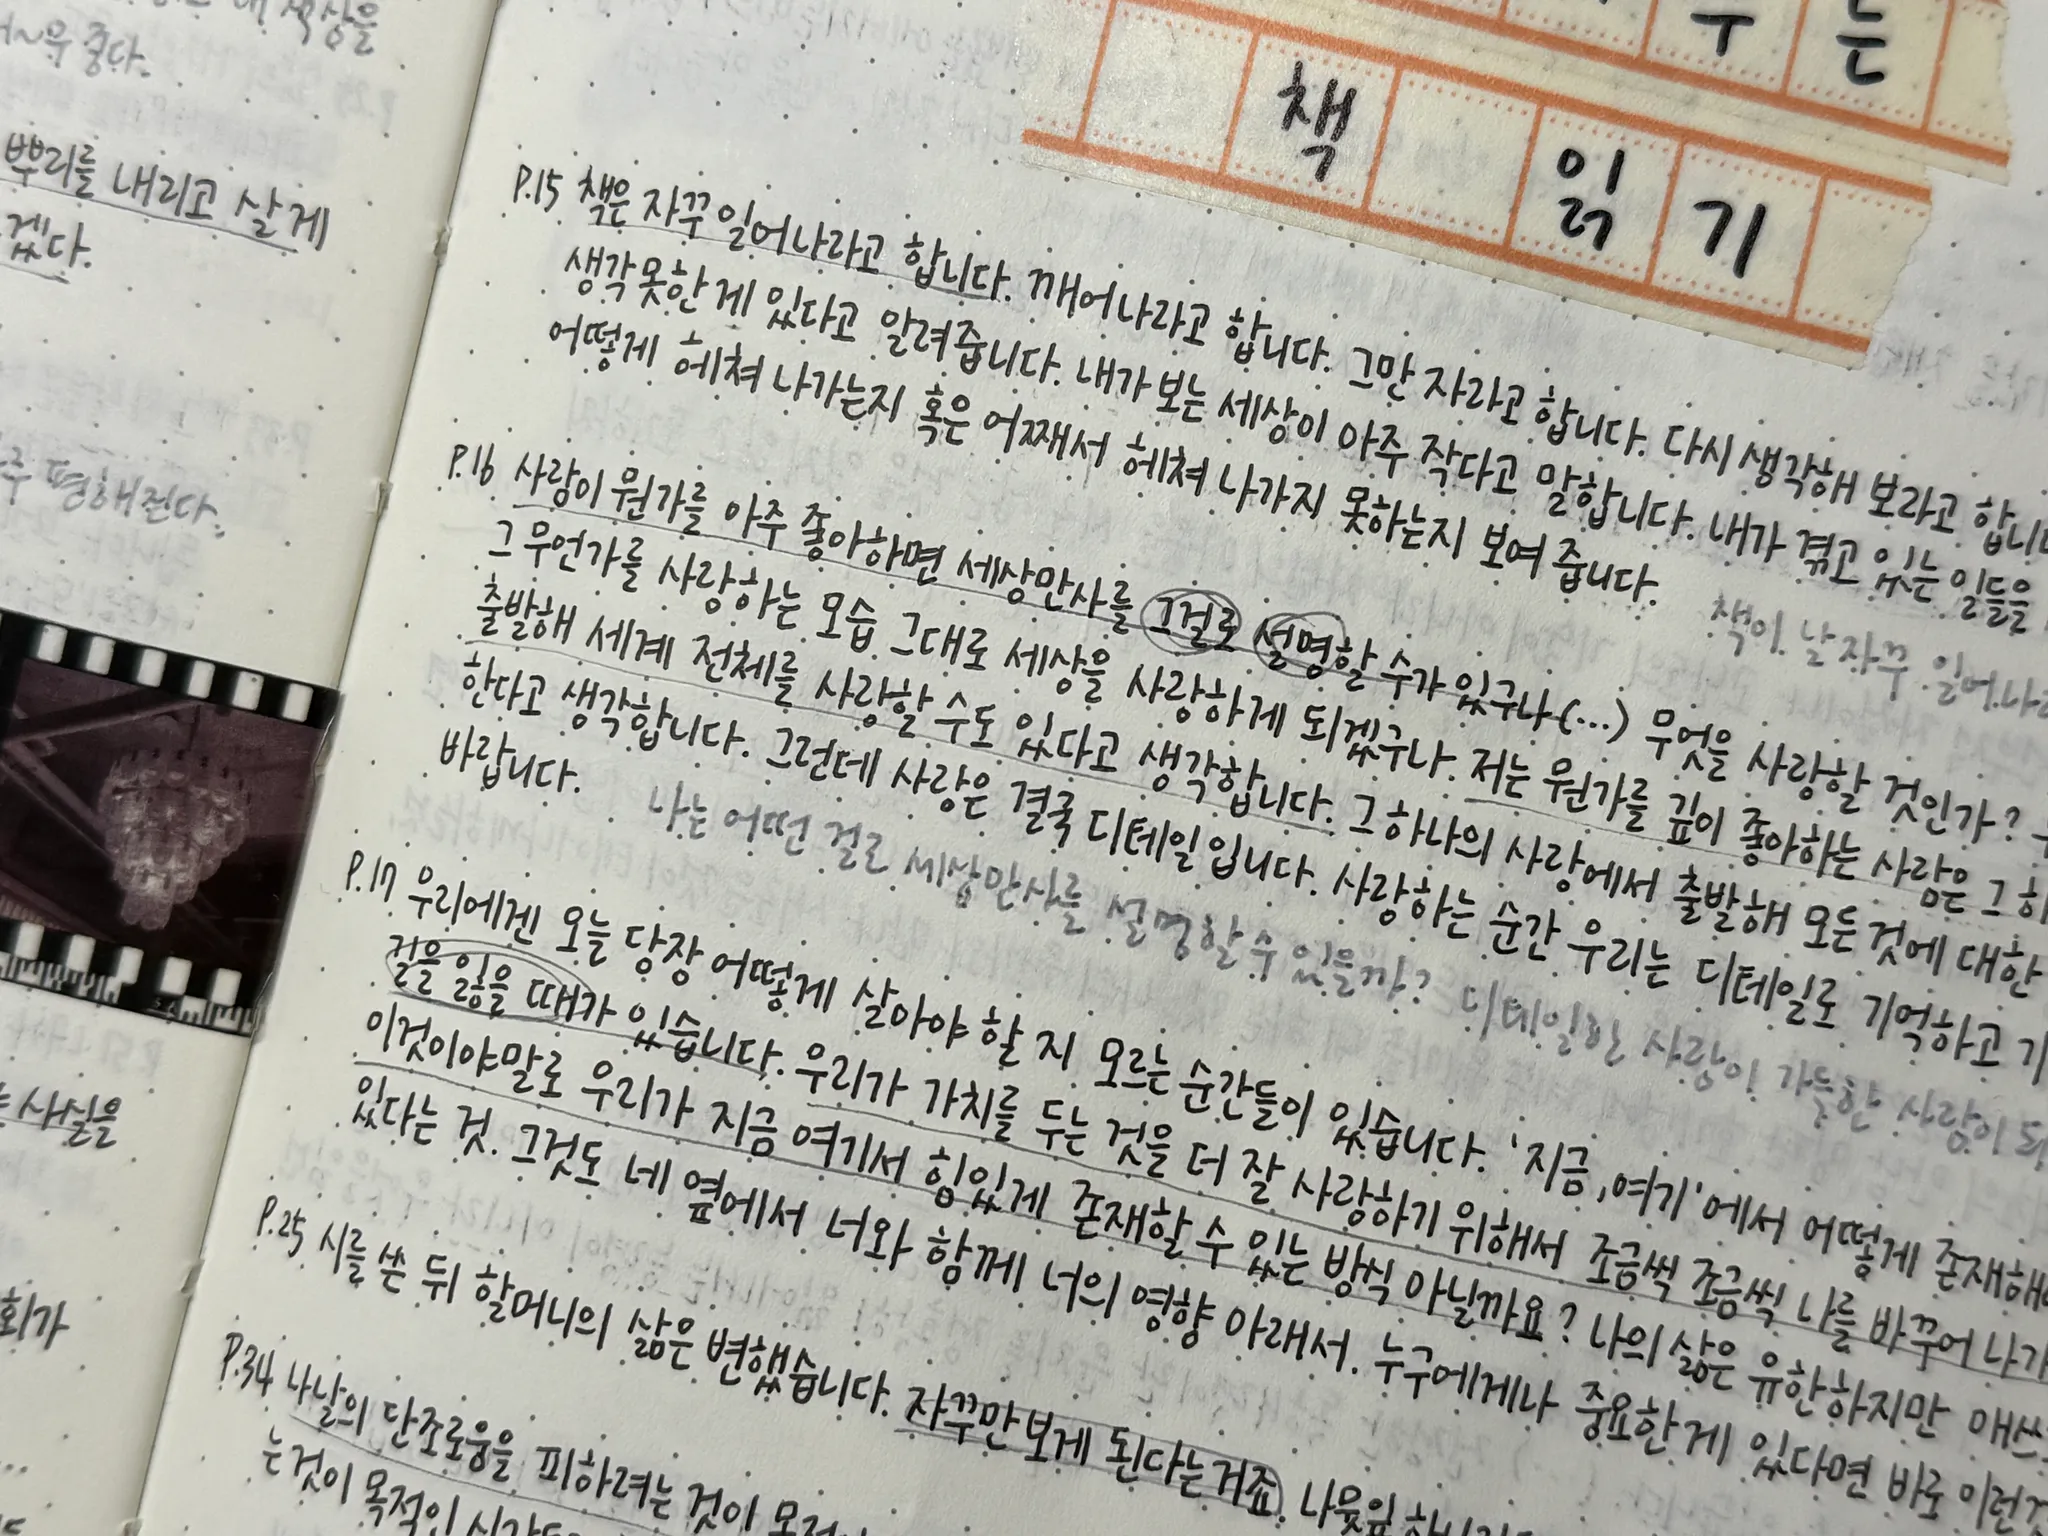 색상을
좋다.
뿌리를 내리고 살게
겠다.
편해진다.
사실을
회가
는
책 읽기
P.15 책은 자꾸 일어나라고 합니다. 깨어나라고 합니다. 그만 자라고 합니다. 다시 생각해 보라고 합니다
생각못한 게 있다고 알려줍니다. 내가 보는 세상이 아주 작다고 말합니다. 내가 겪고 있는 일들을
어떻게 헤쳐 나가는지 혹은 어째서 헤쳐 나가지 못하는지 보여 줍니다.
책이 날 자꾸 일어나라
P.16 사람이 뭔가를 아주 좋아하면 세상만사를 그걸로 설명할 수가 있구나(...) 무엇을 사랑할 것인가?
그 무언가를 사랑하는 모습 그대로 세상을 사랑하게 되겠구나. 저는 뭔가를 깊이 좋아하는 사람은 그 하
출발해 세계 전체를 사랑할 수도 있다고 생각합니다. 그 하나의 사랑에서 출발해 모든 것에 대한
한다고 생각합니다. 그런데 사랑은 결국 디테일입니다. 사랑하는 순간 우리는 디테일로 기억하고 기
바랍니다.
나는 어떤 걸로 세상만사를 설명할 수 있을까? 디테일한 사랑이 가득한 사람이 되
P.17 우리에겐 오늘 당장 어떻게 살아야 할 지 모르는 순간들이 있습니다. '지금, 여기'에서 어떻게 존재해야
길을 잃을 때가 있습니다. 우리가 가치를 두는 것을 더 잘 사랑하기 위해서 조금씩 조금씩 나를 바꾸어 나가
이것이야말로 우리가 지금 여기서 힘있게 존재할 수 있는 방식 아닐까요? 나의 삶은 유한하지만 애쓰
있다는 것. 그것도 네 옆에서 너와 함께 너의 영향 아래서. 누구에게나 중요한 게 있다면 바로 이런
P.25 시를 쓴 뒤 할머니의 삶은 변했습니다. 자꾸만 보게 된다는 거죠. 나뭇잎
P.34 나날의 단조로움을 피하려는 것이
는 것이 목적인